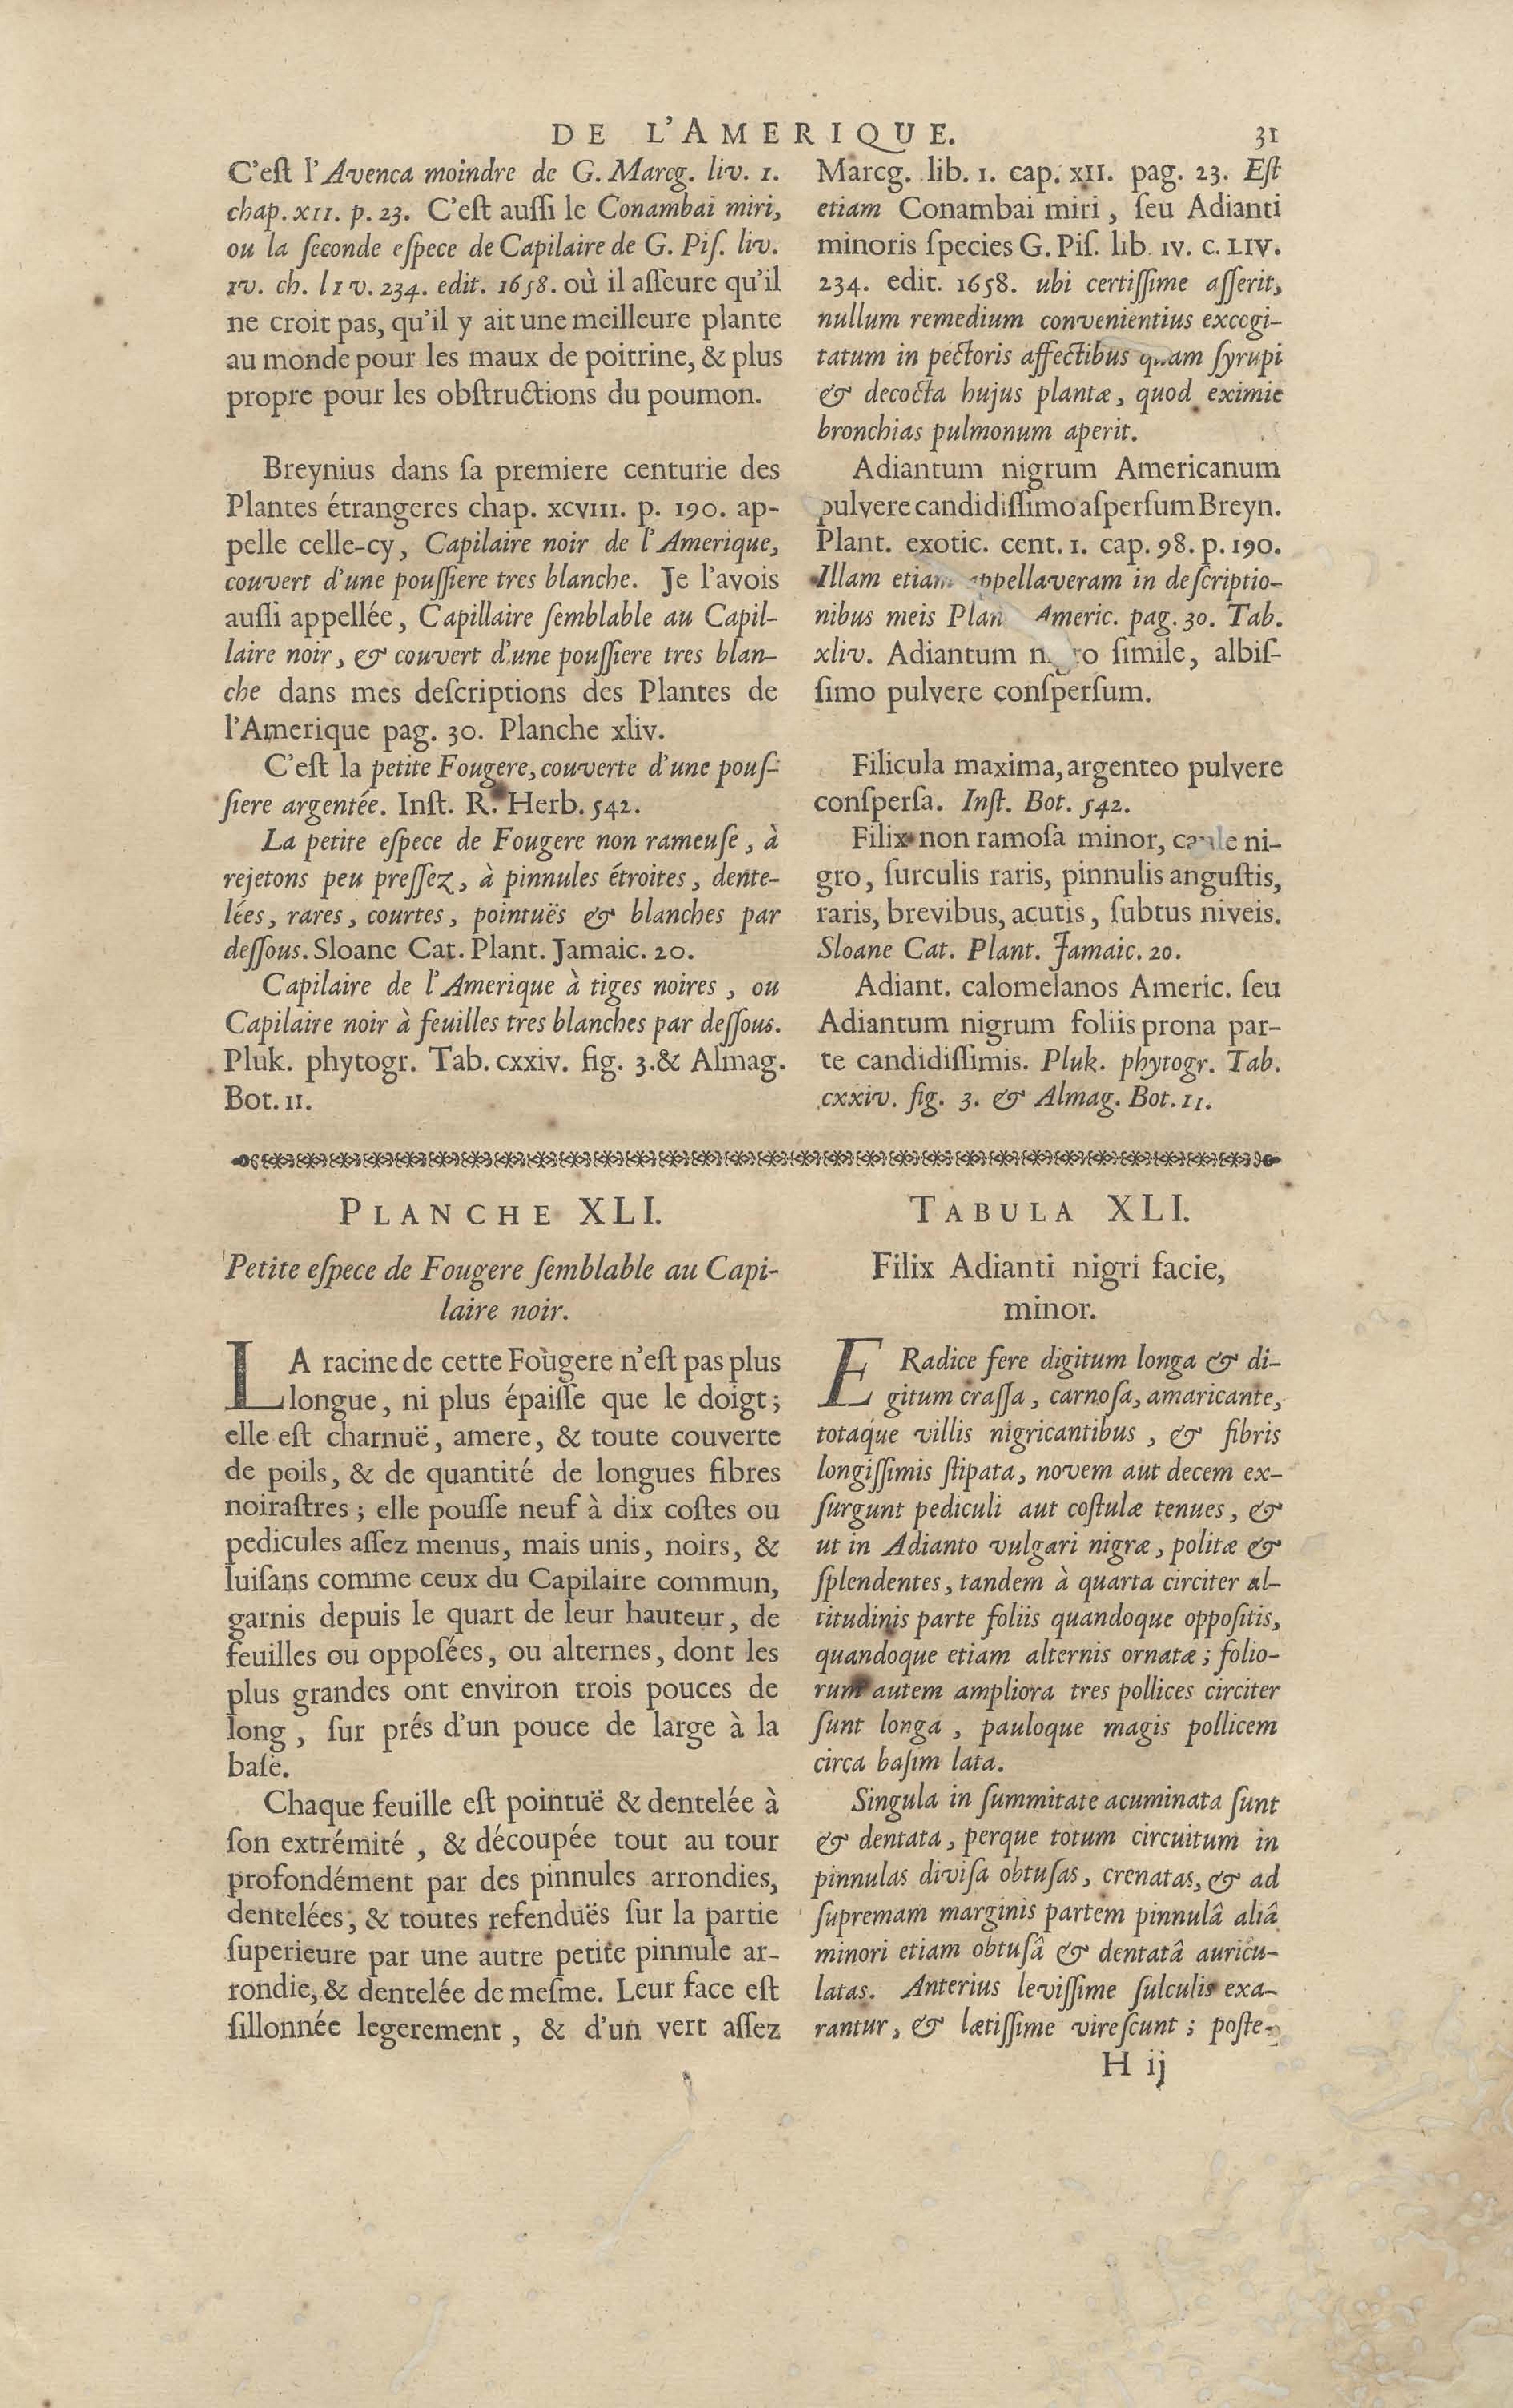 DE L'AMERIQUE. 31
C'eſt l'Avenca moindre de G. Marcg. liv. 1.
chap. XII. p. 23. C'eſt auſſi le Conambai miri,
ou la ſeconde eſpece de Capilaire de G. Piſ. liv.
IV. ch. lIV. 234. edit. 1658. où il aſſeure qu'il
ne croit pas, qu'il y ait une meilleure plante
au monde pour les maux de poitrine, & plus
propre pour les obſtructions du poumon.
Breynius dans ſa premiere centurie des
Plantes étrangeres chap. XCVIII. p. 190. ap-
pelle celle-cy, Capilaire noir de l'Amerique,
couvert d'une pouſſiere tres blanche. Je l'avois
auſſi appellée, Capillaire ſemblable au Capil-
laire noir, & couvert d'une pouſſiere tres blan-
che dans mes deſcriptions des Plantes de
l'Amerique pag. 30. Planche xliv.
C'eſt la petite Fougere, couverte d'une pouſ-
ſiere argentée. Inſt. R. Herb. 542.
La petite eſpece de Fougere non rameuſe, à
rejetons peu preſſez, à pinnules étroites, dente-
lées, rares, courtes, pointuës & blanches par
deſſous. Sloane Cat. Plant. Jamaic. 20.
Capilaire de l'Amerique à tiges noires, ou
Capilaire noir à feuilles tres blanches par deſſous.
Pluk. phytogr. Tab. cxxiv. fig. 3. & Almag.
Bot. 11.
Marcg. lib. 1. cap. XII. pag. 23. Eſt
etiam Conambai miri, ſeu Adianti
minoris ſpecies G. Piſ. lib. IV. c. LIV.
234. edit. 1658. ubi certiſſime aſſerit,
nullum remedium convenientius excogi-
tatum in pectoris affectibus quam ſyrupi
& decocta hujus plantæ, quod eximie
bronchias pulmonum aperit.
Adiantum nigrum Americanum
pulvere candidiſſimo aſperſum Breyn.
Plant. exotic. cent. 1. cap. 98. p. 190.
Illam etiam appellaveram in deſcriptio-
nibus meis Plan Americ. pag. 30. Tab.
xliv. Adiantum nigro ſimile, albiſ-
ſimo pulvere conſperſum.
Filicula maxima, argenteo pulvere
conſperſa. Inſt. Bot. 542.
Filix non ramoſa minor, caule ni-
gro, ſurculis raris, pinnulis anguſtis,
raris, brevibus, acutis, ſubtus niveis.
Sloane Cat. Plant. Jamaic. 20.
Adiant. calomelanos Americ. ſeu
Adiantum nigrum foliis prona par-
te candidiſſimis. Pluk. phytogr. Tab.
cxxiv. fig. 3. & Almag. Bot. 11.
PLANCHE XLI.
Petite eſpece de Fougere ſemblable au Capi-
laire noir.
LA racine de cette Foùgere n'eſt pas plus
longue, ni plus épaiſſe que le doigt;
elle eſt charnuë, amere, & toute couverte
de poils, & de quantité de longues fibres
noiraſtres; elle pouſſe neuf à dix coſtes ou
pedicules aſſez menus, mais unis, noirs, &
luiſans comme ceux du Capilaire commun,
garnis depuis le quart de leur hauteur, de
feuilles ou oppoſées, ou alternes, dont les
plus grandes ont environ trois pouces de
long, ſur prés d'un pouce de large à la
baſe.
Chaque feuille eſt pointuë & dentelée à
ſon extrémité, & découpée tout au tour
profondément par des pinnules arrondies,
dentelées, & toutes refenduës ſur la partie
ſuperieure par une autre petite pinnule ar-
rondie, & dentelée de meſme. Leur face eſt
ſillonnée legerement, & d'un vert aſſez
TABULA XLI.
Filix Adianti nigri facie,
minor.
E Radice fere digitum longa & di-
gitum craſſa, carnoſa, amaricante,
totaque villis nigricantibus, & fibris
longiſſimis ſtipata, novem aut decem ex-
ſurgunt pediculi aut coſtulæ tenues, &
ut in Adianto vulgari nigræ, politæ &
ſplendentes, tandem à quarta circiter al-
titudinis parte foliis quandoque oppoſitis,
quandoque etiam alternis ornatæ; folio-
rum autem ampliora tres pollices circiter
ſunt longa, pauloque magis pollicem
circa baſim lata.
Singula in ſummitate acuminata ſunt
& dentata, perque totum circuitum in
pinnulas diviſa obtuſas, crenatas, & ad
ſupremam marginis partem pinnulâ aliâ
minori etiam obtuſâ & dentatâ auricu-
latas. Anterius leviſſime ſulculis exa-
rantur, & lætiſſime vireſcunt; poſte-
H ij